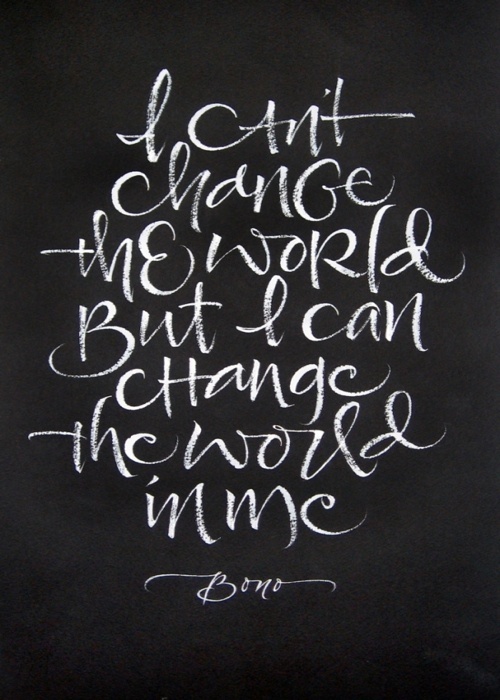 I CAn't
chanGe
thE woRld
But I can
cHange
the world
in me
Bono